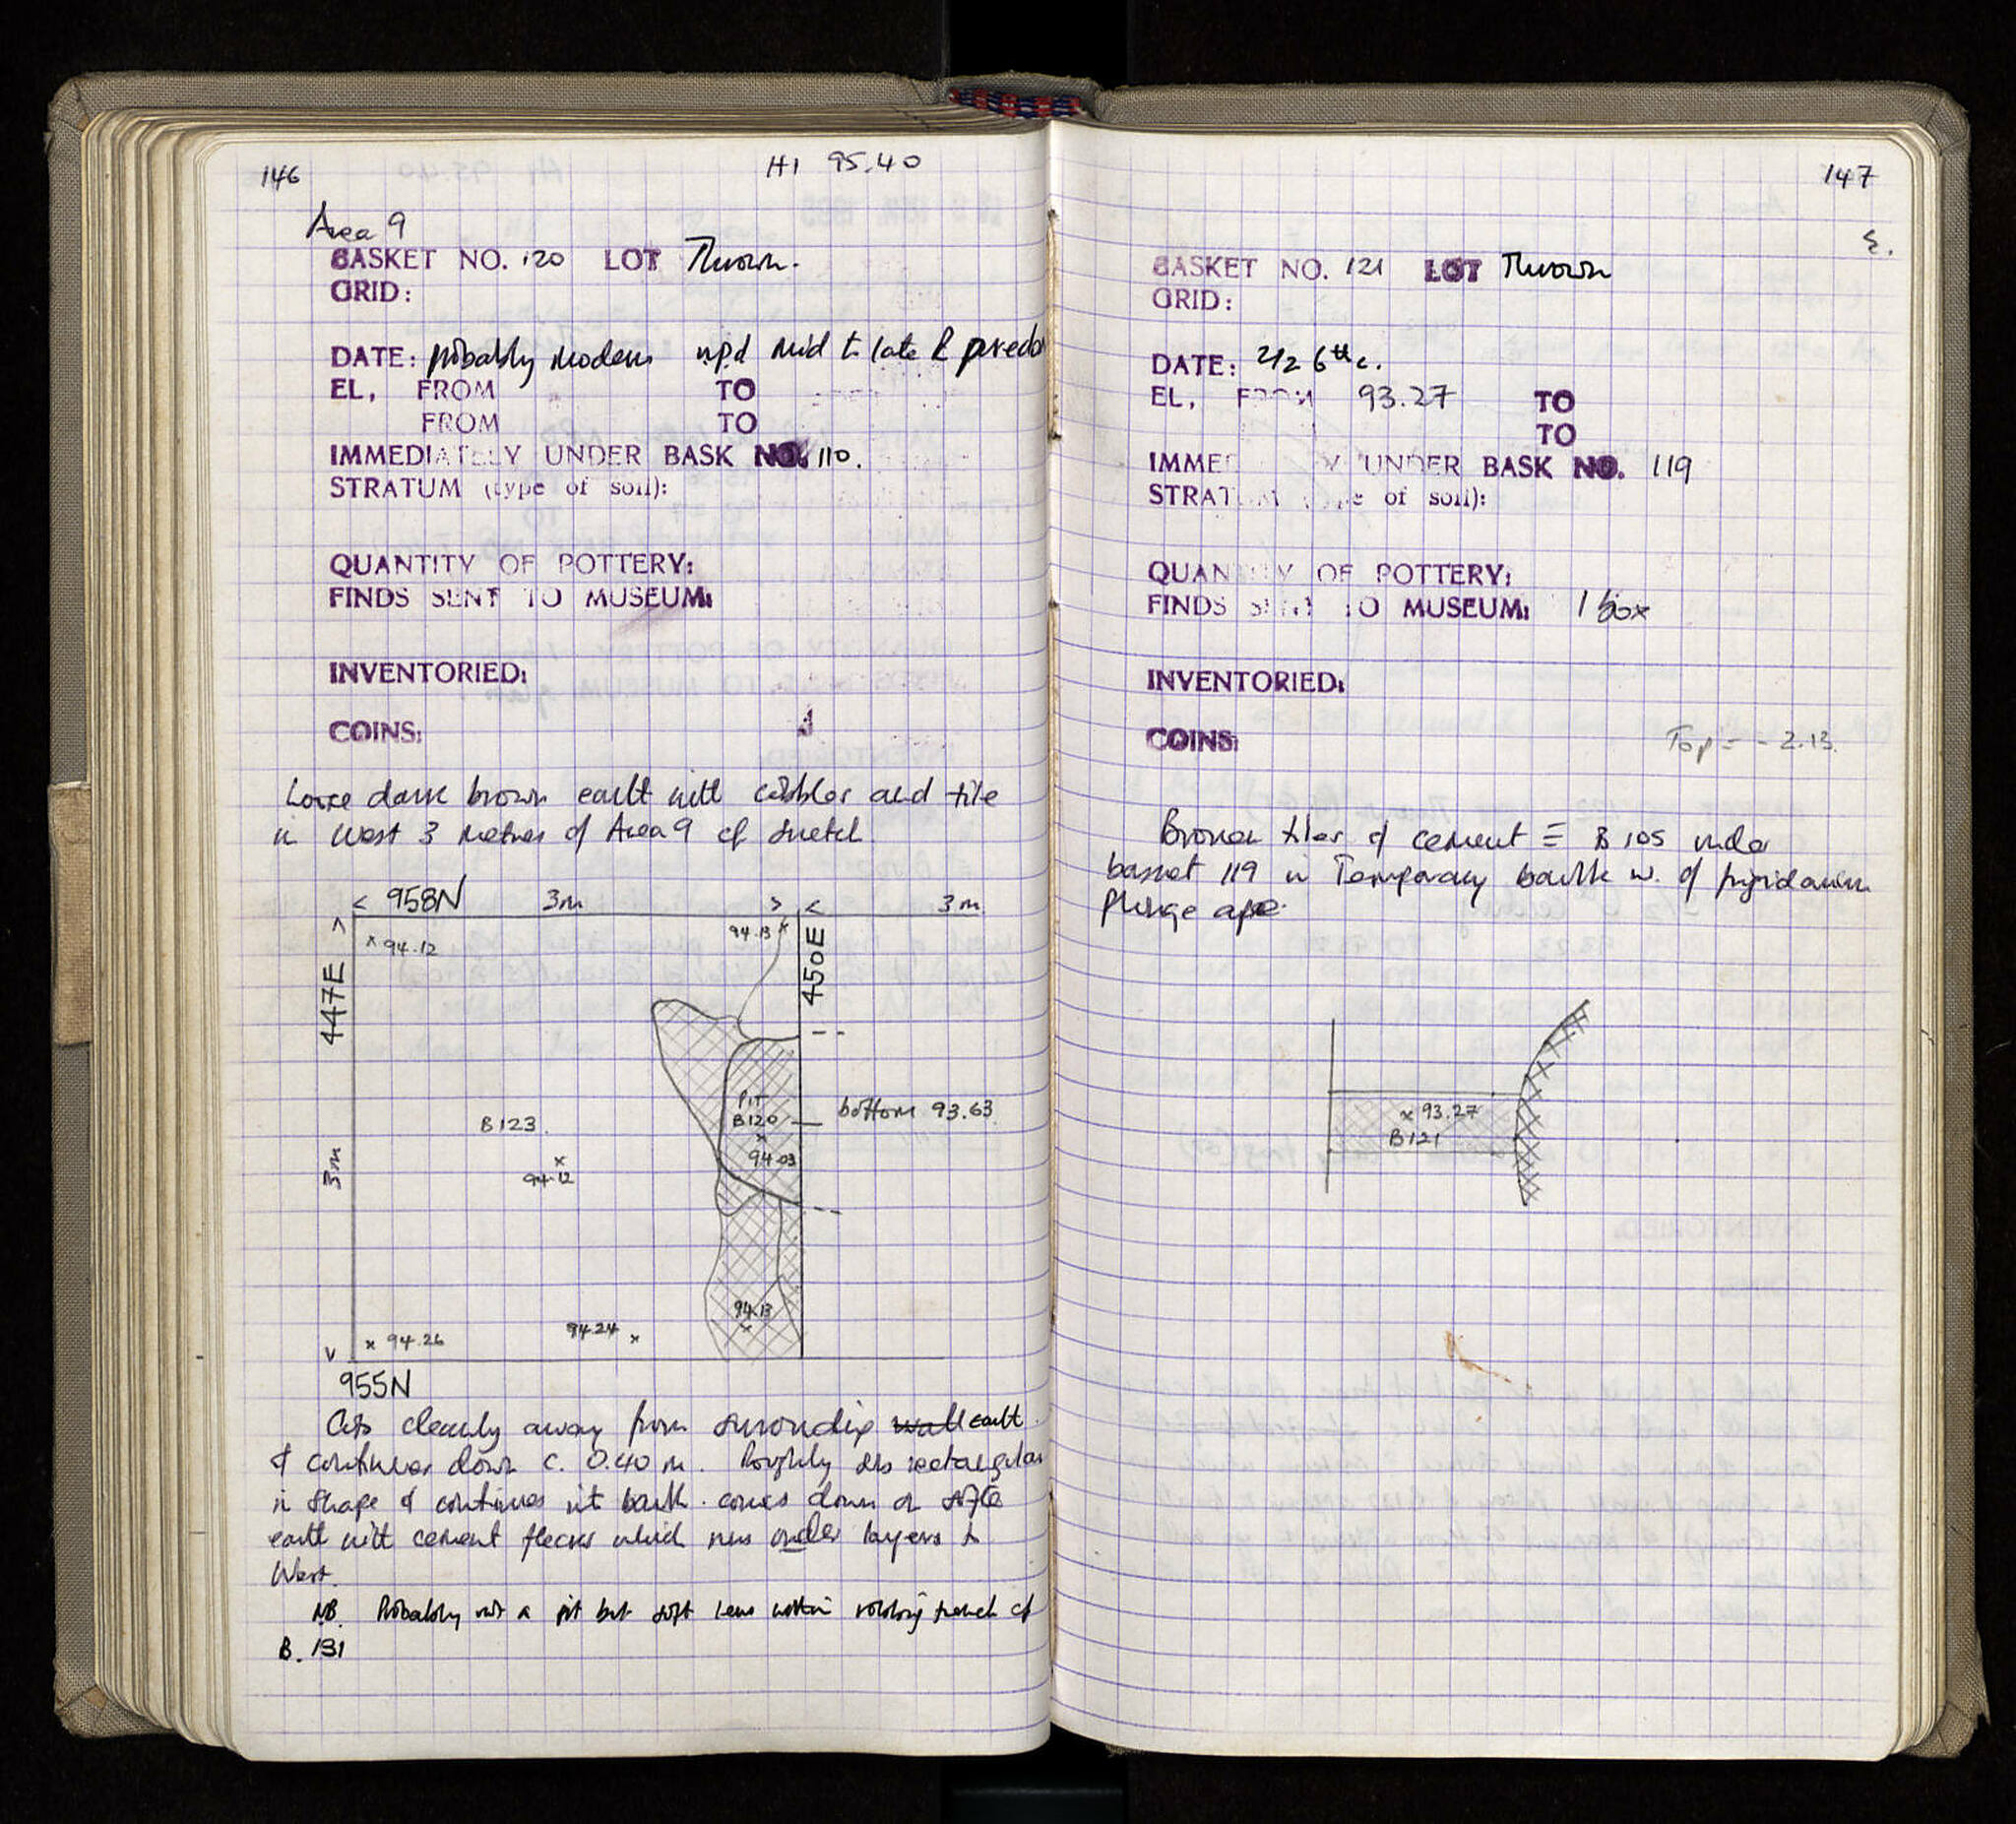 146
HI 95.40
Area 9
BASKET NO. 120 LOT Thrown.
GRID:
DATE: probably modern npd mid to late R predo
EL, FROM TO
FROM TO
IMMEDIATELY UNDER BASK NO. 110.
STRATUM (type of soil):
QUANTITY OF POTTERY:
FINDS SENT TO MUSEUM:
INVENTORIED:
COINS:
Loose dark brown earth with cobbles and tile
in West 3 metres of Area 9 cf sketch.
< 958N 3m > < 3m
447E
x 94.12
94.13 x
450E
Pit
B120
x
94.03
bottom 93.63
B123.
x
94.12
3m
94.13
x
x 94.26
94.24 x
955N
Cuts cleanly away from surrounding wall earth.
& continues down c. 0.40 m. Roughly rectangular
in shape & continues into baulk. comes down on softer
earth with cement flecks which runs under layers to
West.
NB. Probably not a pit but soft lens within robbing trench cf
B. 131
147
Σ.
BASKET NO. 121 LOT Thrown
GRID:
DATE: 2/2 6th c.
EL, FROM 93.27 TO
TO
IMMEDIATELY UNDER BASK NO. 119
STRATUM (type of soil):
QUANTITY OF POTTERY:
FINDS SENT TO MUSEUM: 1 box
INVENTORIED:
COINS:
Top = - 2.13.
Broken tiles & cement = B 105 under
basket 119 in Temporary baulk w. of frigidarium
plunge apse.
x 93.27
B121